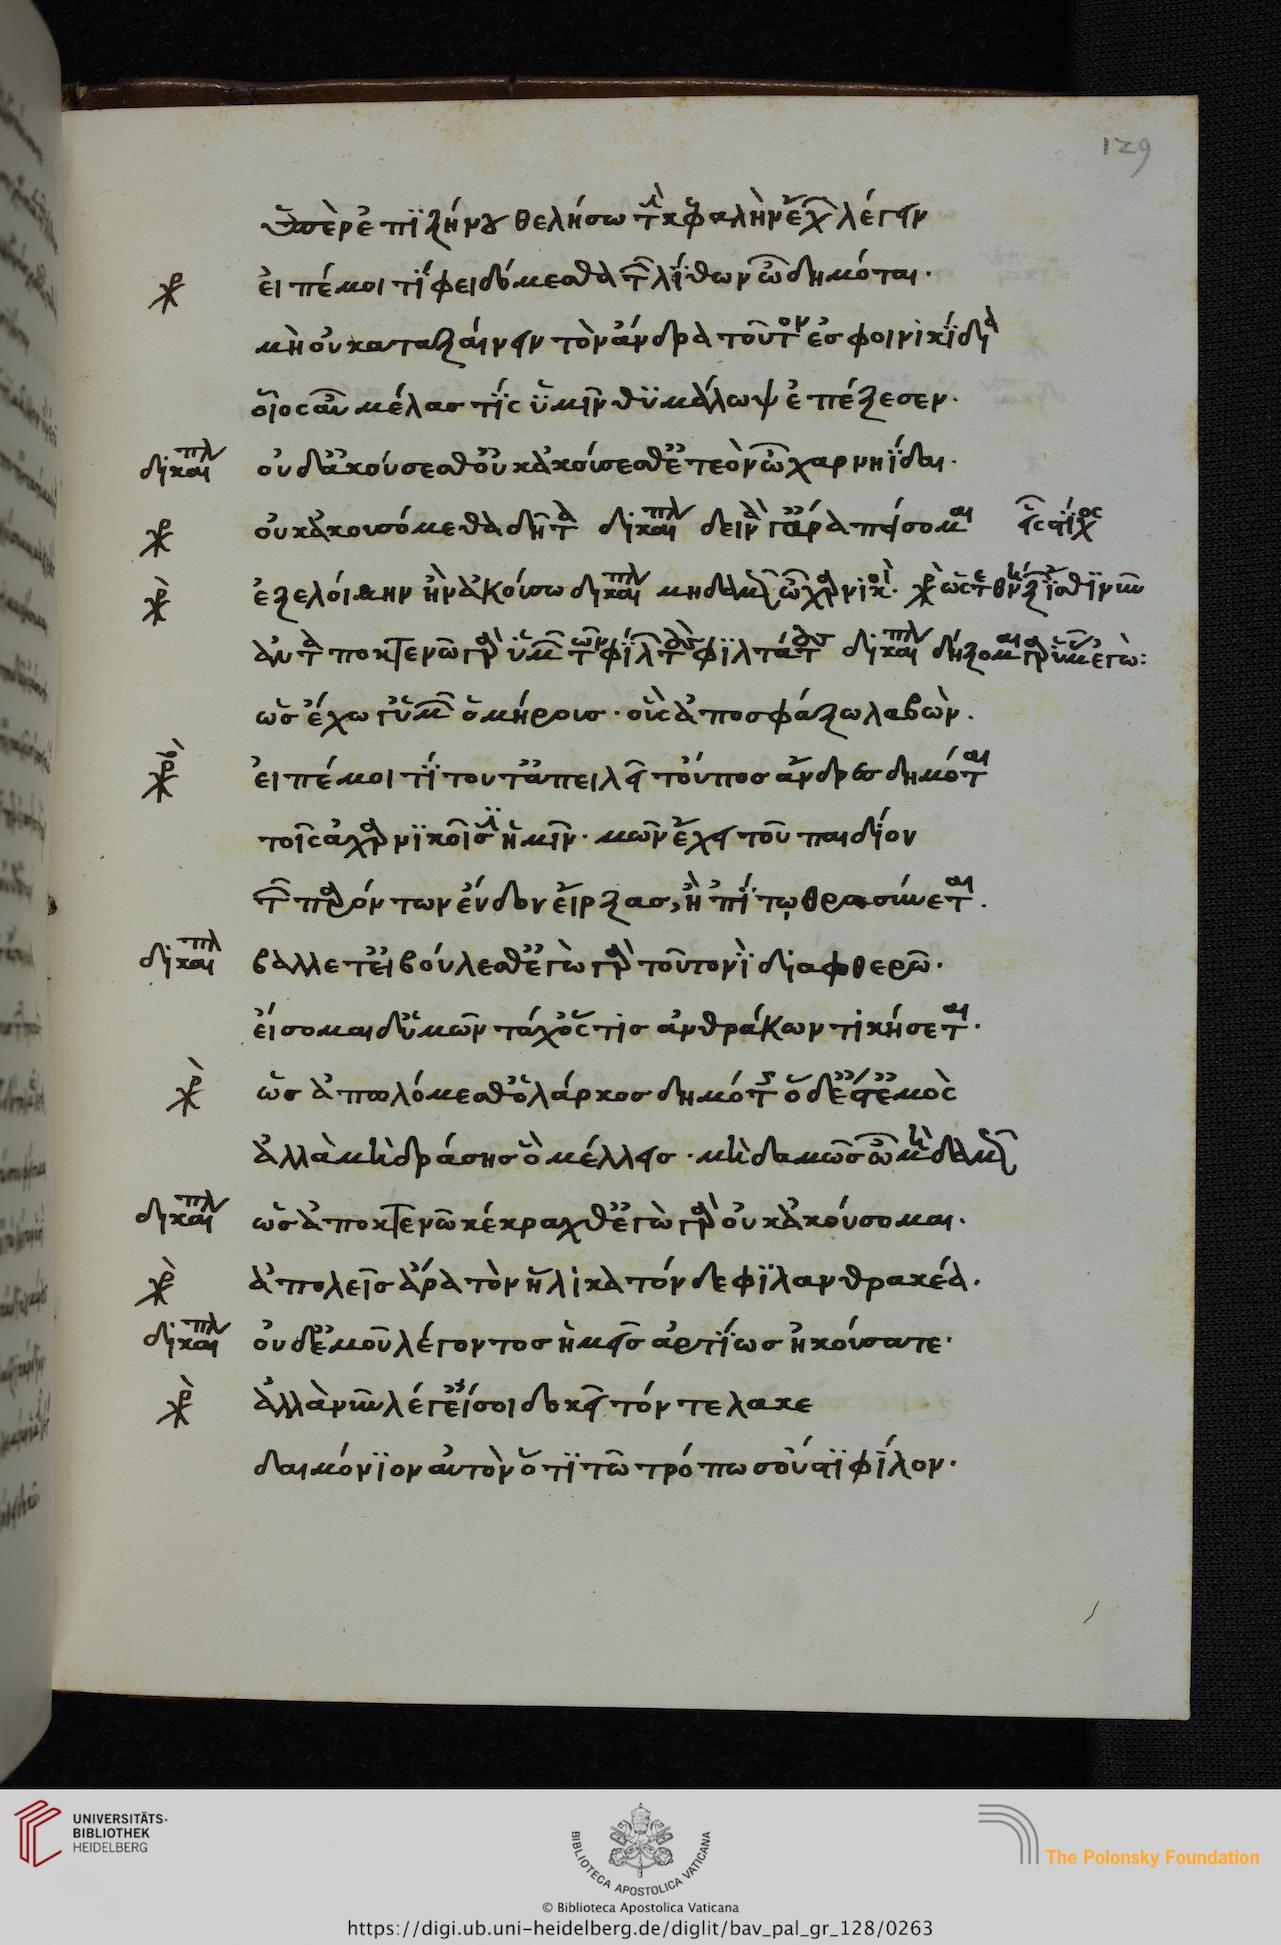 129
ὑπὲρ ἐπιξήνου θελήσω τὴν κεφαλὴν ἔχων λέγειν
εἰπέ μοι τί φειδόμεσθα τῶν λίθων ὦ δημόται.
μὴ οὐ καταξαίνειν τὸν ἄνδρα τοῦτον ἐς φοινικίδα
οἷος αὖ μέλας τίς ὑμῖν θυμάλωψ ἐπέζεσεν.
δικαι πλ οὐδ' ἀκούσεσθ' οὐκ ἀκούσεσθ' ἐτεὸν ὦ χαρνηΐδαι.
οὐκ ἀκουσόμεσθα δῆτα δικαι πλ δεινὰ γ' ἄρα πείσομαι
ἐξολοίμην ἢν ἀκούσω δικαι πλ μηδαμῶς ὦ χαρνικοί.
ἀνταποκτενῶ γὰρ ὑμῶν τῶν φίλων τοὺς φιλτάτους δικαι πλ δήξομαι γὰρ ὑμᾶς ἐγὼ:
ὡς ἔχω γ' ὑμῶν ὁμήρους. οὓς ἀποσφάξω λαβών.
εἰπέ μοι τί τοῦτ' ἀπειλεῖ τοὔπος ἄνδρες δημόται
τοῖς ἀχαρνικοῖσιν ἡμῖν. μῶν ἔχει του παιδίον
τῶν παρόντων ἔνδον εἵρξας, ἢ 'πὶ τῳ θρασύνεται.
δικαι πλ βάλλετ' εἰ βούλεσθ' ἐγὼ γὰρ τουτονὶ διαφθερῶ.
εἴσομαι δ' ὑμῶν τάχ' ὅστις ἀνθράκων τι κήσεται.
ὡς ἀπωλόμεσθ' ὁ λάρκος δημότης ὅδ' ἔστ' ἐμὸς
ἀλλὰ μὴ δράσης ὃ μέλλεις. μηδαμῶς ὦ μηδαμῶς
δικαι πλ ὡς ἀποκτενῶ κέκραχθ' ἐγὼ γὰρ οὐκ ἀκούσομαι.
ἀπολεῖς ἄρα τὸν ἥλικα τόνδε φιλανθρακέα.
δικαι πλ οὐδ' ἐμοῦ λέγοντος ἡμεῖς ἀρτίως ἠκούσατε.
ἀλλὰ νῦν λέγ' εἴ σοι δοκεῖ τόν τε λακε
δαιμόνιον αὐτὸν ὅτι τῶ τρόπω σού 'στι φίλον.
UNIVERSITÄTS-
BIBLIOTHEK
HEIDELBERG
BIBLIOTECA APOSTOLICA VATICANA
The Polonsky Foundation
© Biblioteca Apostolica Vaticana
https://digi.ub.uni-heidelberg.de/diglit/bav_pal_gr_128/0263